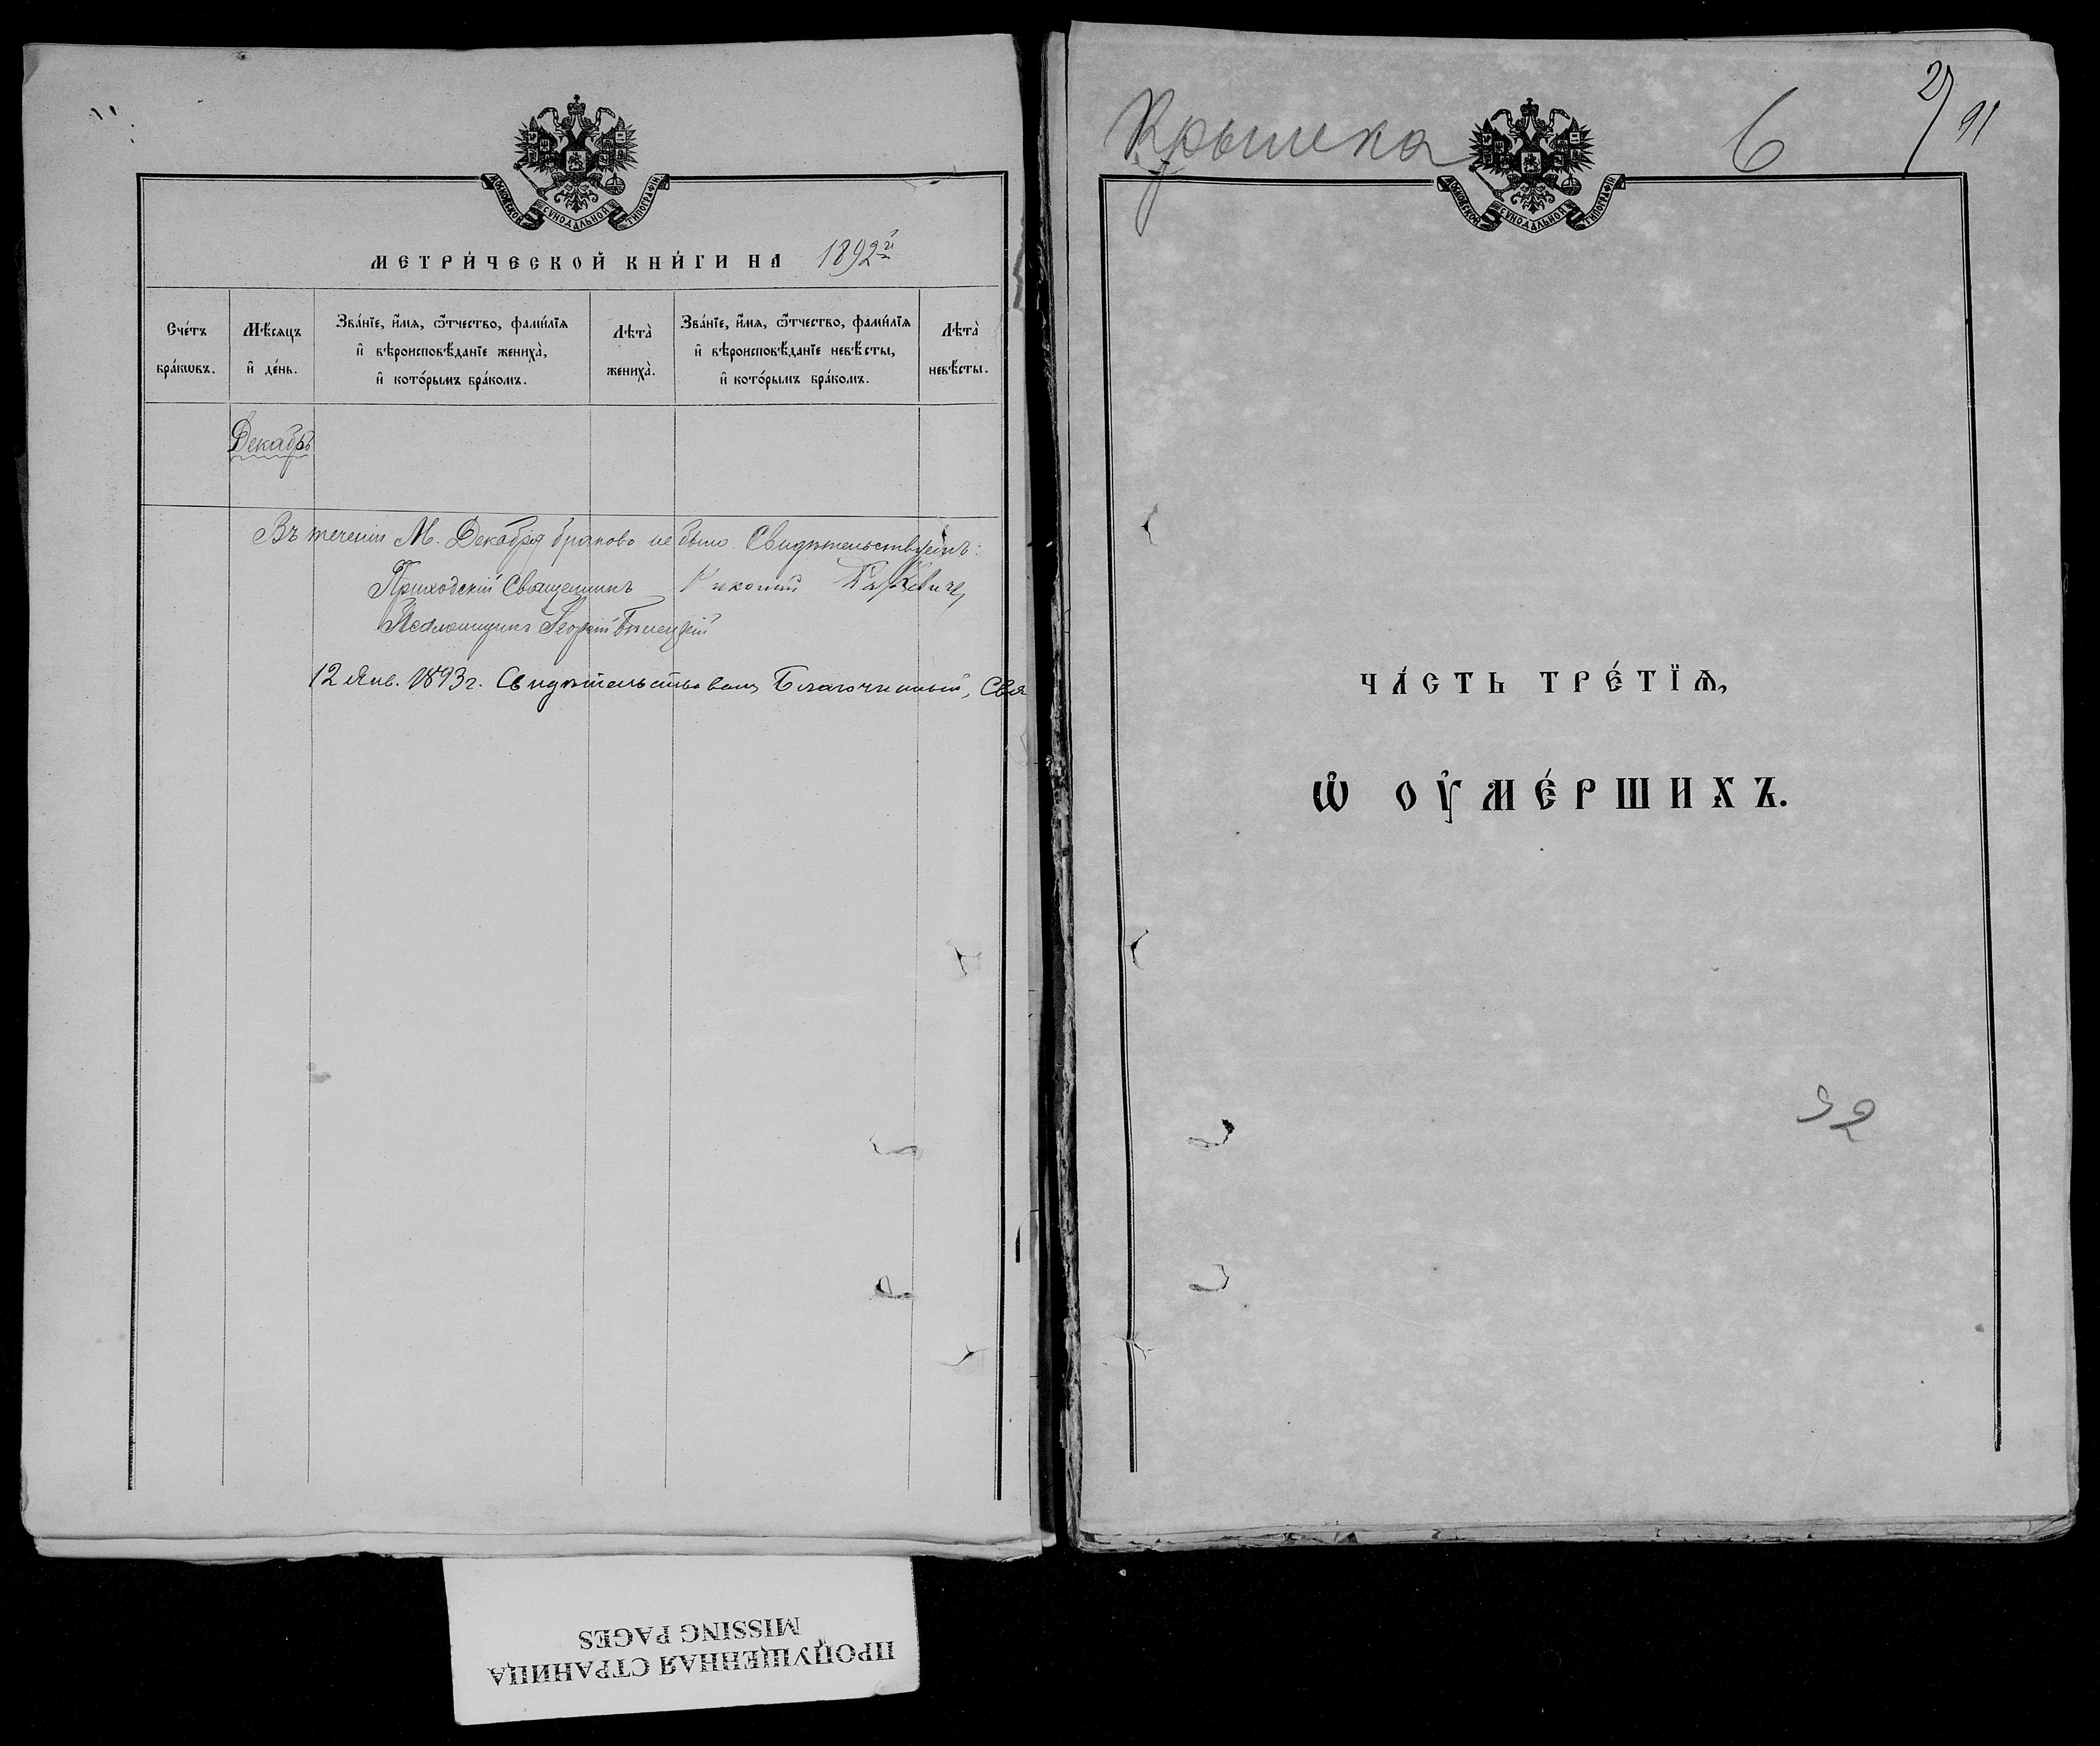 МОСКОВСКОЙ СѴНОДАЛЬНОЙ ТИПОГРАФІИ
МЕТРИ́ЧЕСКОЙ КНИ́ГИ НА 1892й
Сче́тъ бра́кѡвъ.
Мѣ́сяцъ и҆ де́нь.
Зва́нїе, и҆́мѧ, ѻ҆́тчество, фами́лїѧ
и҆ вѣроисповѣ́данїе жениха̀,
и҆ кото́рымъ бра́комъ.
Лѣта̀ жениха̀.
Зва́нїе, и҆́мѧ, ѻ҆́тчество, фами́лїѧ
и҆ вѣроисповѣ́данїе невѣ́сты,
и҆ кото́рымъ бра́комъ.
Лѣта̀ невѣ́сты.
Декабрь
Въ теченіи М. Декабря браковъ не было. Свидѣтельствуемъ:
Приходскій Священникъ
Псаломщикъ Георгій
12 Янв. 1893 г. Свидѣтельствовалъ Благочинный, Свя
Крышка 6 91
МОСКОВСКОЙ СѴНОДАЛЬНОЙ ТИПОГРАФІИ
ЧА́СТЬ ТРЕ́ТЇѦ,
Ѡ҆ ОУ҆МЕ́РШИХЪ.
92
ПРОПУЩЕННАЯ СТРАНИЦА
MISSING PAGES